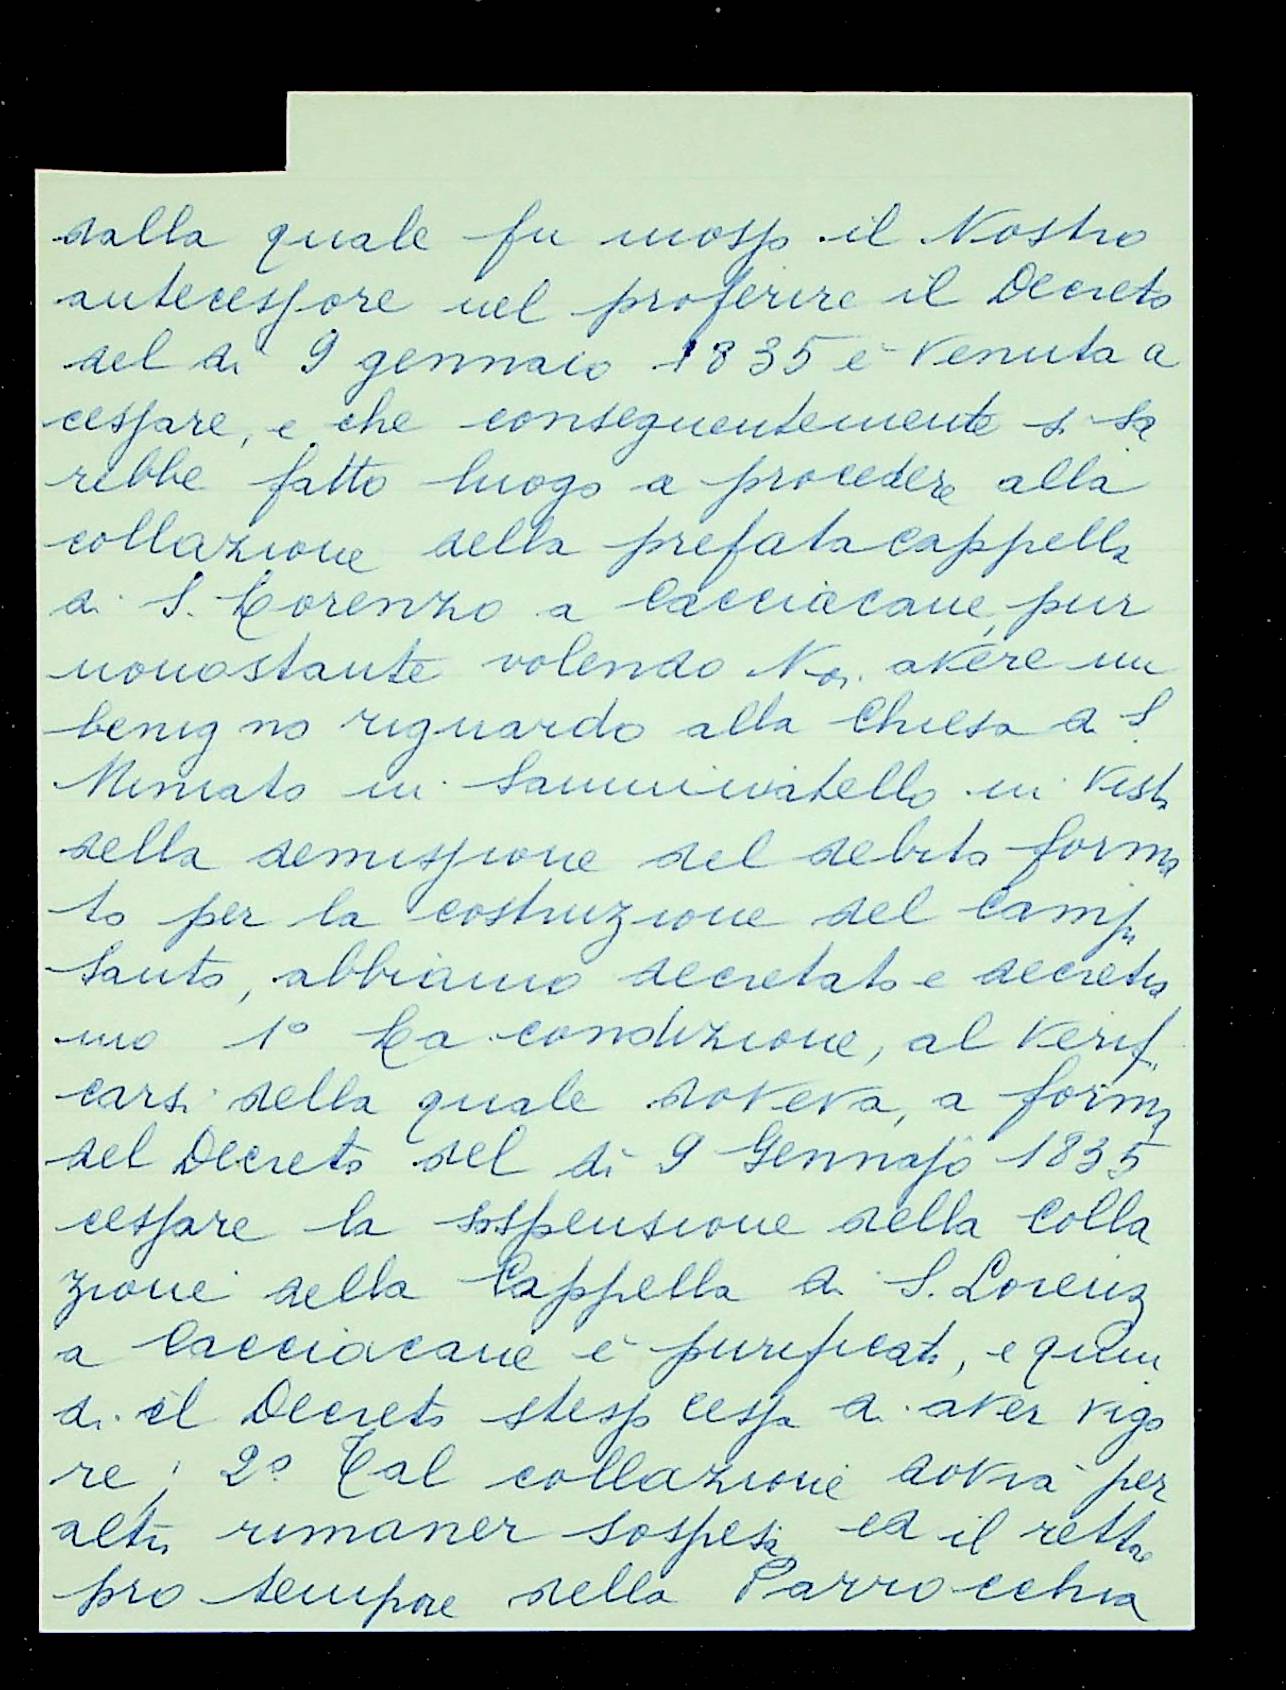 dalla quale fu mosso il Nostro
antecessore nel proferire il Decreto
del dì 9 gennaio 1835 è venuta a
cessare, e che conseguentemente si sa
rebbe fatto luogo a procedere alla
collazione della prefata cappella
di S. Lorenzo a Cacciacane, pur
nonostante volendo Noi avere un
benigno riguardo alla Chiesa di S.
Miniato in Samminiatello in vista
della demissione del debito forma
to per la costruzione del Campo
Santo, abbiamo decretato e decretia
mo 1º La condizione, al verifi
carsi della quale doveva, a forma
del Decreto del dì 9 Gennajo 1835
cessare la sospensione della Colla
zione della Cappella di S. Lorenzo
a Cacciacane è purificata, e quin
di il Decreto stesso cessa di aver vigo
re; 2º Tal collazione dovrà per
altro rimaner sospesa ed il rettore
pro tempore della Parrocchia